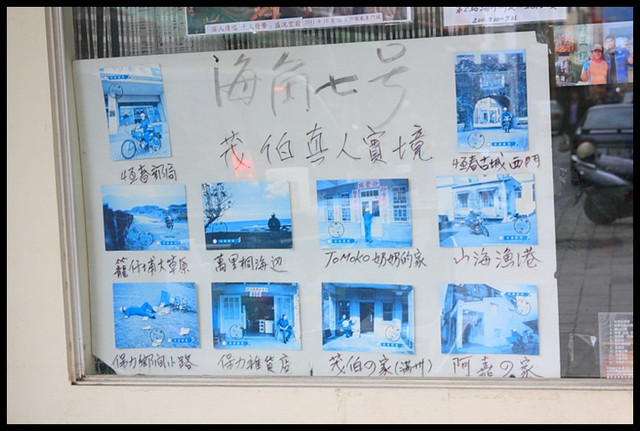 海角七号
茂伯真人實境
恆春郵局
恆春古城西門
籠仔埔大草原
萬里桐海边
TOMOKO奶奶的家
山海漁港
保力鄉間小路
保力雜貨店
茂伯の家(滿州)
阿嘉の家